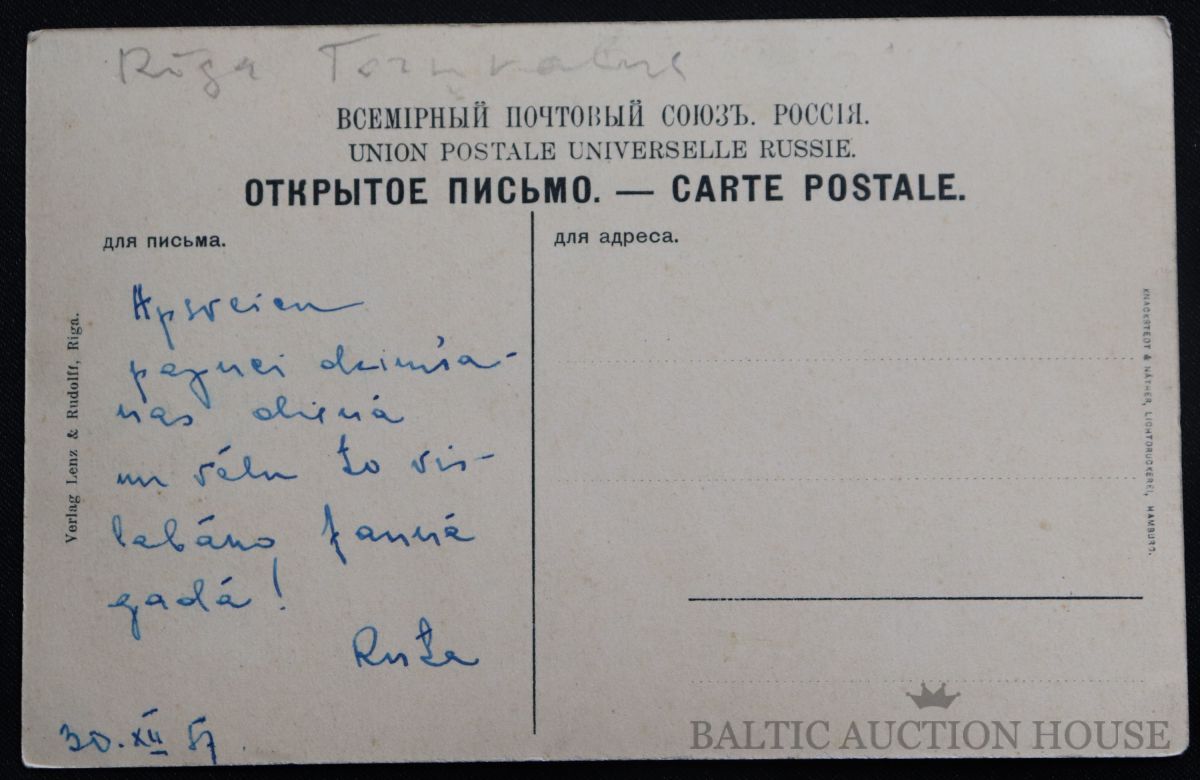 Rīga Torņkalns
ВСЕМІРНЫЙ ПОЧТОВЫЙ СОЮЗЪ. РОССІЯ.
UNION POSTALE UNIVERSELLE RUSSIE.
ОТКРЫТОЕ ПИСЬМО. — CARTE POSTALE.
для письма.
для адреса.
Apsveicu
dzimša-
nas dienā
un vēlu to vis-
labāko Jaunā
gadā!
Ruta
30. XII 57.
Verlag Lenz & Rudolff, Riga.
KNACKSTEDT & NÄTHER, LICHTDRUCKEREI, HAMBURG.
BALTIC AUCTION HOUSE